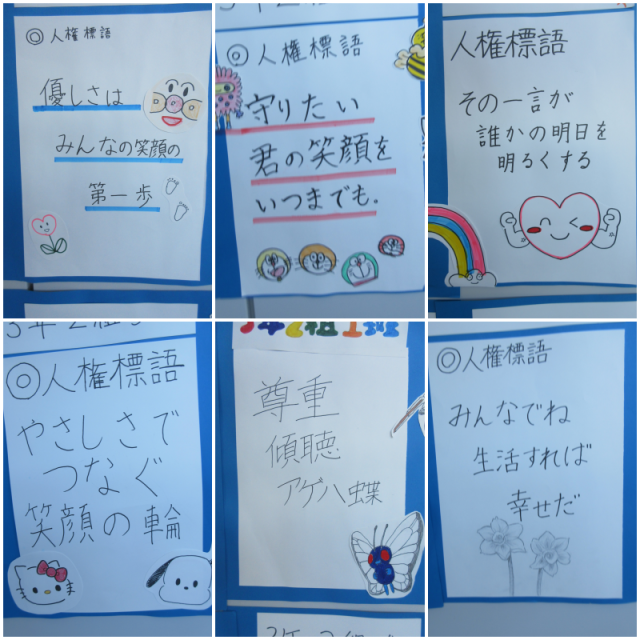 ◎人権標語
優しさは
みんなの笑顔の
第一歩
◎人権標語
守りたい
君の笑顔を
いつまでも。
人権標語
その一言が
誰かの明日を
明るくする
3年2組
◎人権標語
やさしさで
つなぐ
笑顔の輪
3年2組1班
尊重
傾聴
アゲハ蝶
◎人権標語
みんなでね
生活すれば
幸せだ